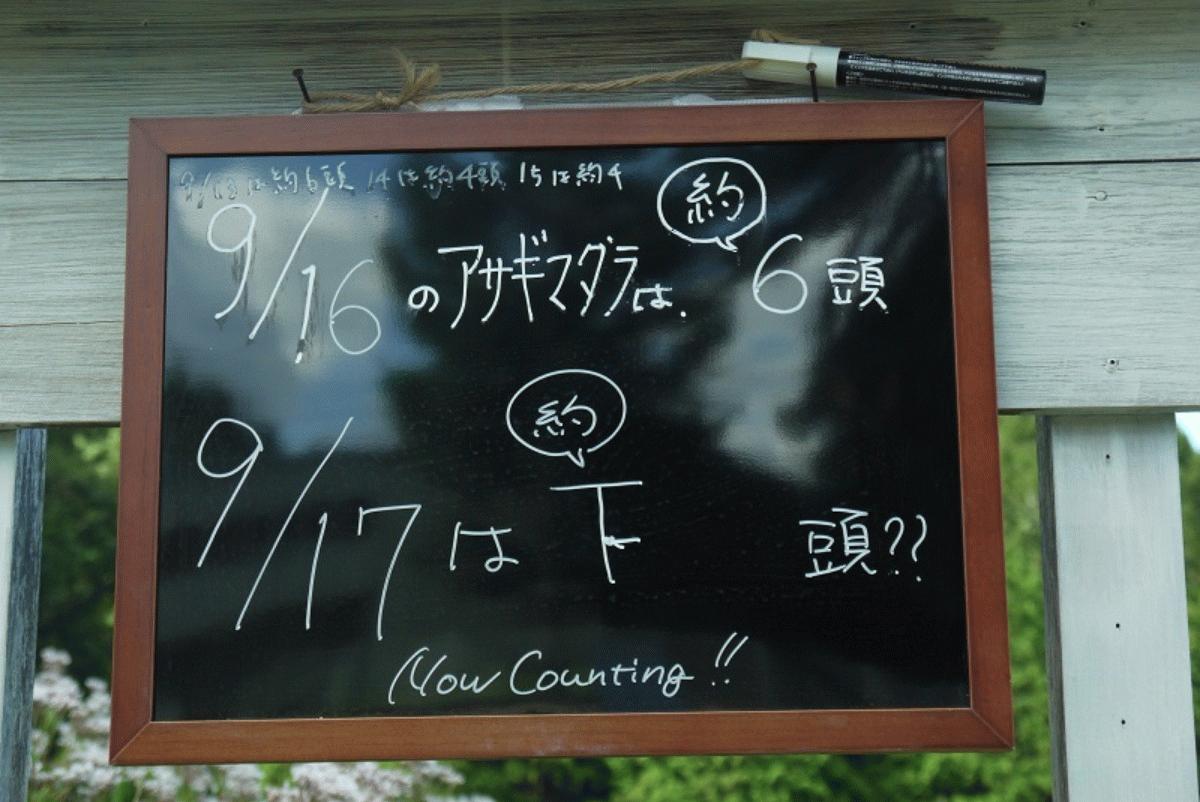 9/13は約6頭 14は約4頭 15は約4
9/16のアサギマダラは. 約 6頭
9/17は 約 下 頭??
Now Counting!!